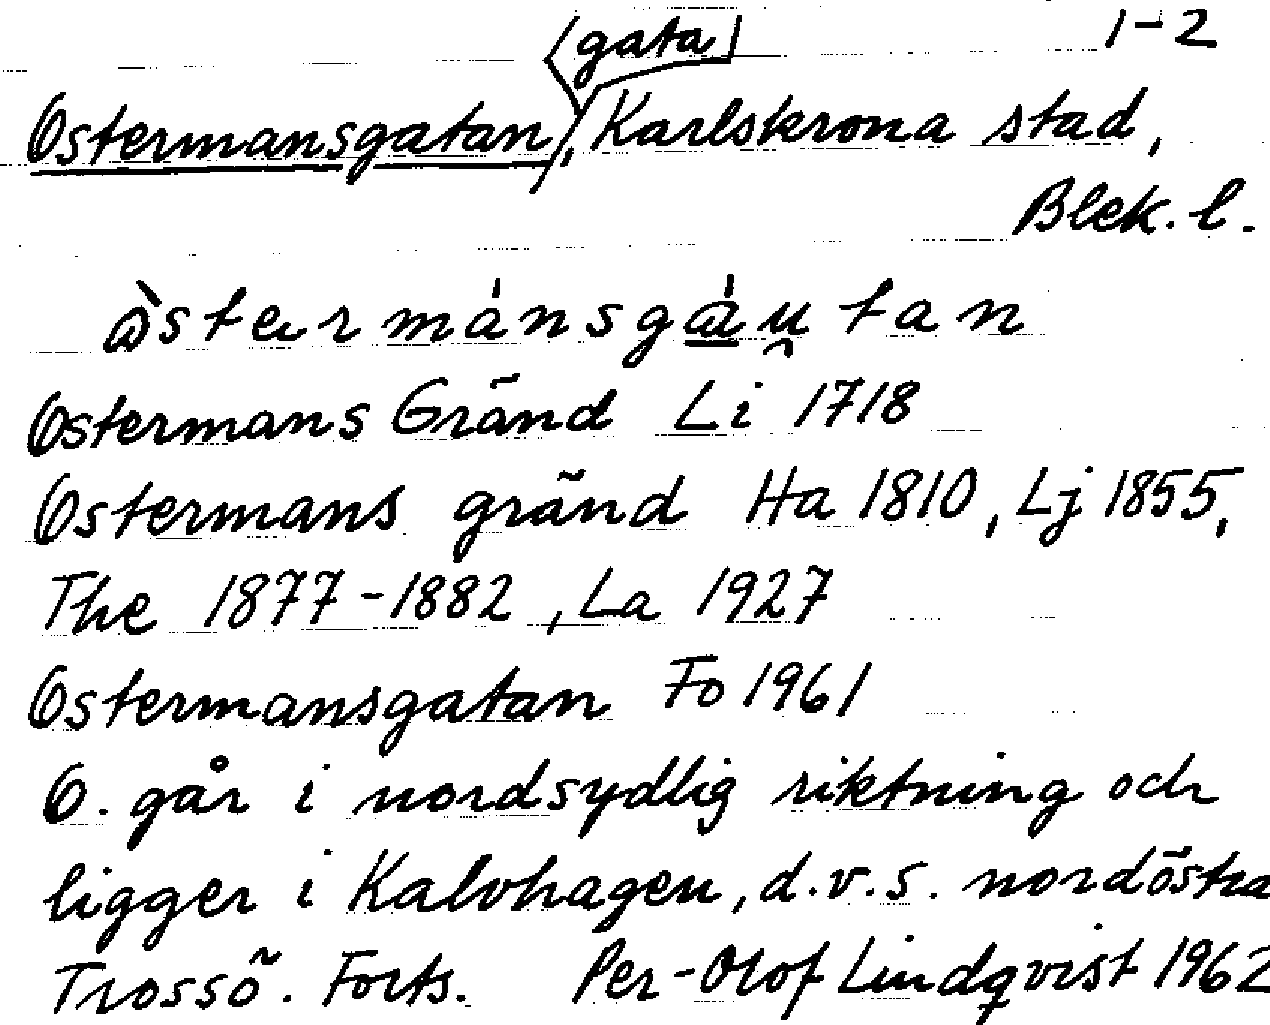 (gata) 1-2
Ostermansgatan, Karlskrona stad,
Blek. l.
Ostermans Gränd Li 1718
Ostermans gränd Ha 1810, Lj 1855,
The 1877-1882, La 1927
Ostermansgatan Fo 1961
O. går i nordsydlig riktning och
ligger i Kalvhagen, d.v.s. nordöstra
Trossö. Forts. Per-Olof Lindqvist 1962